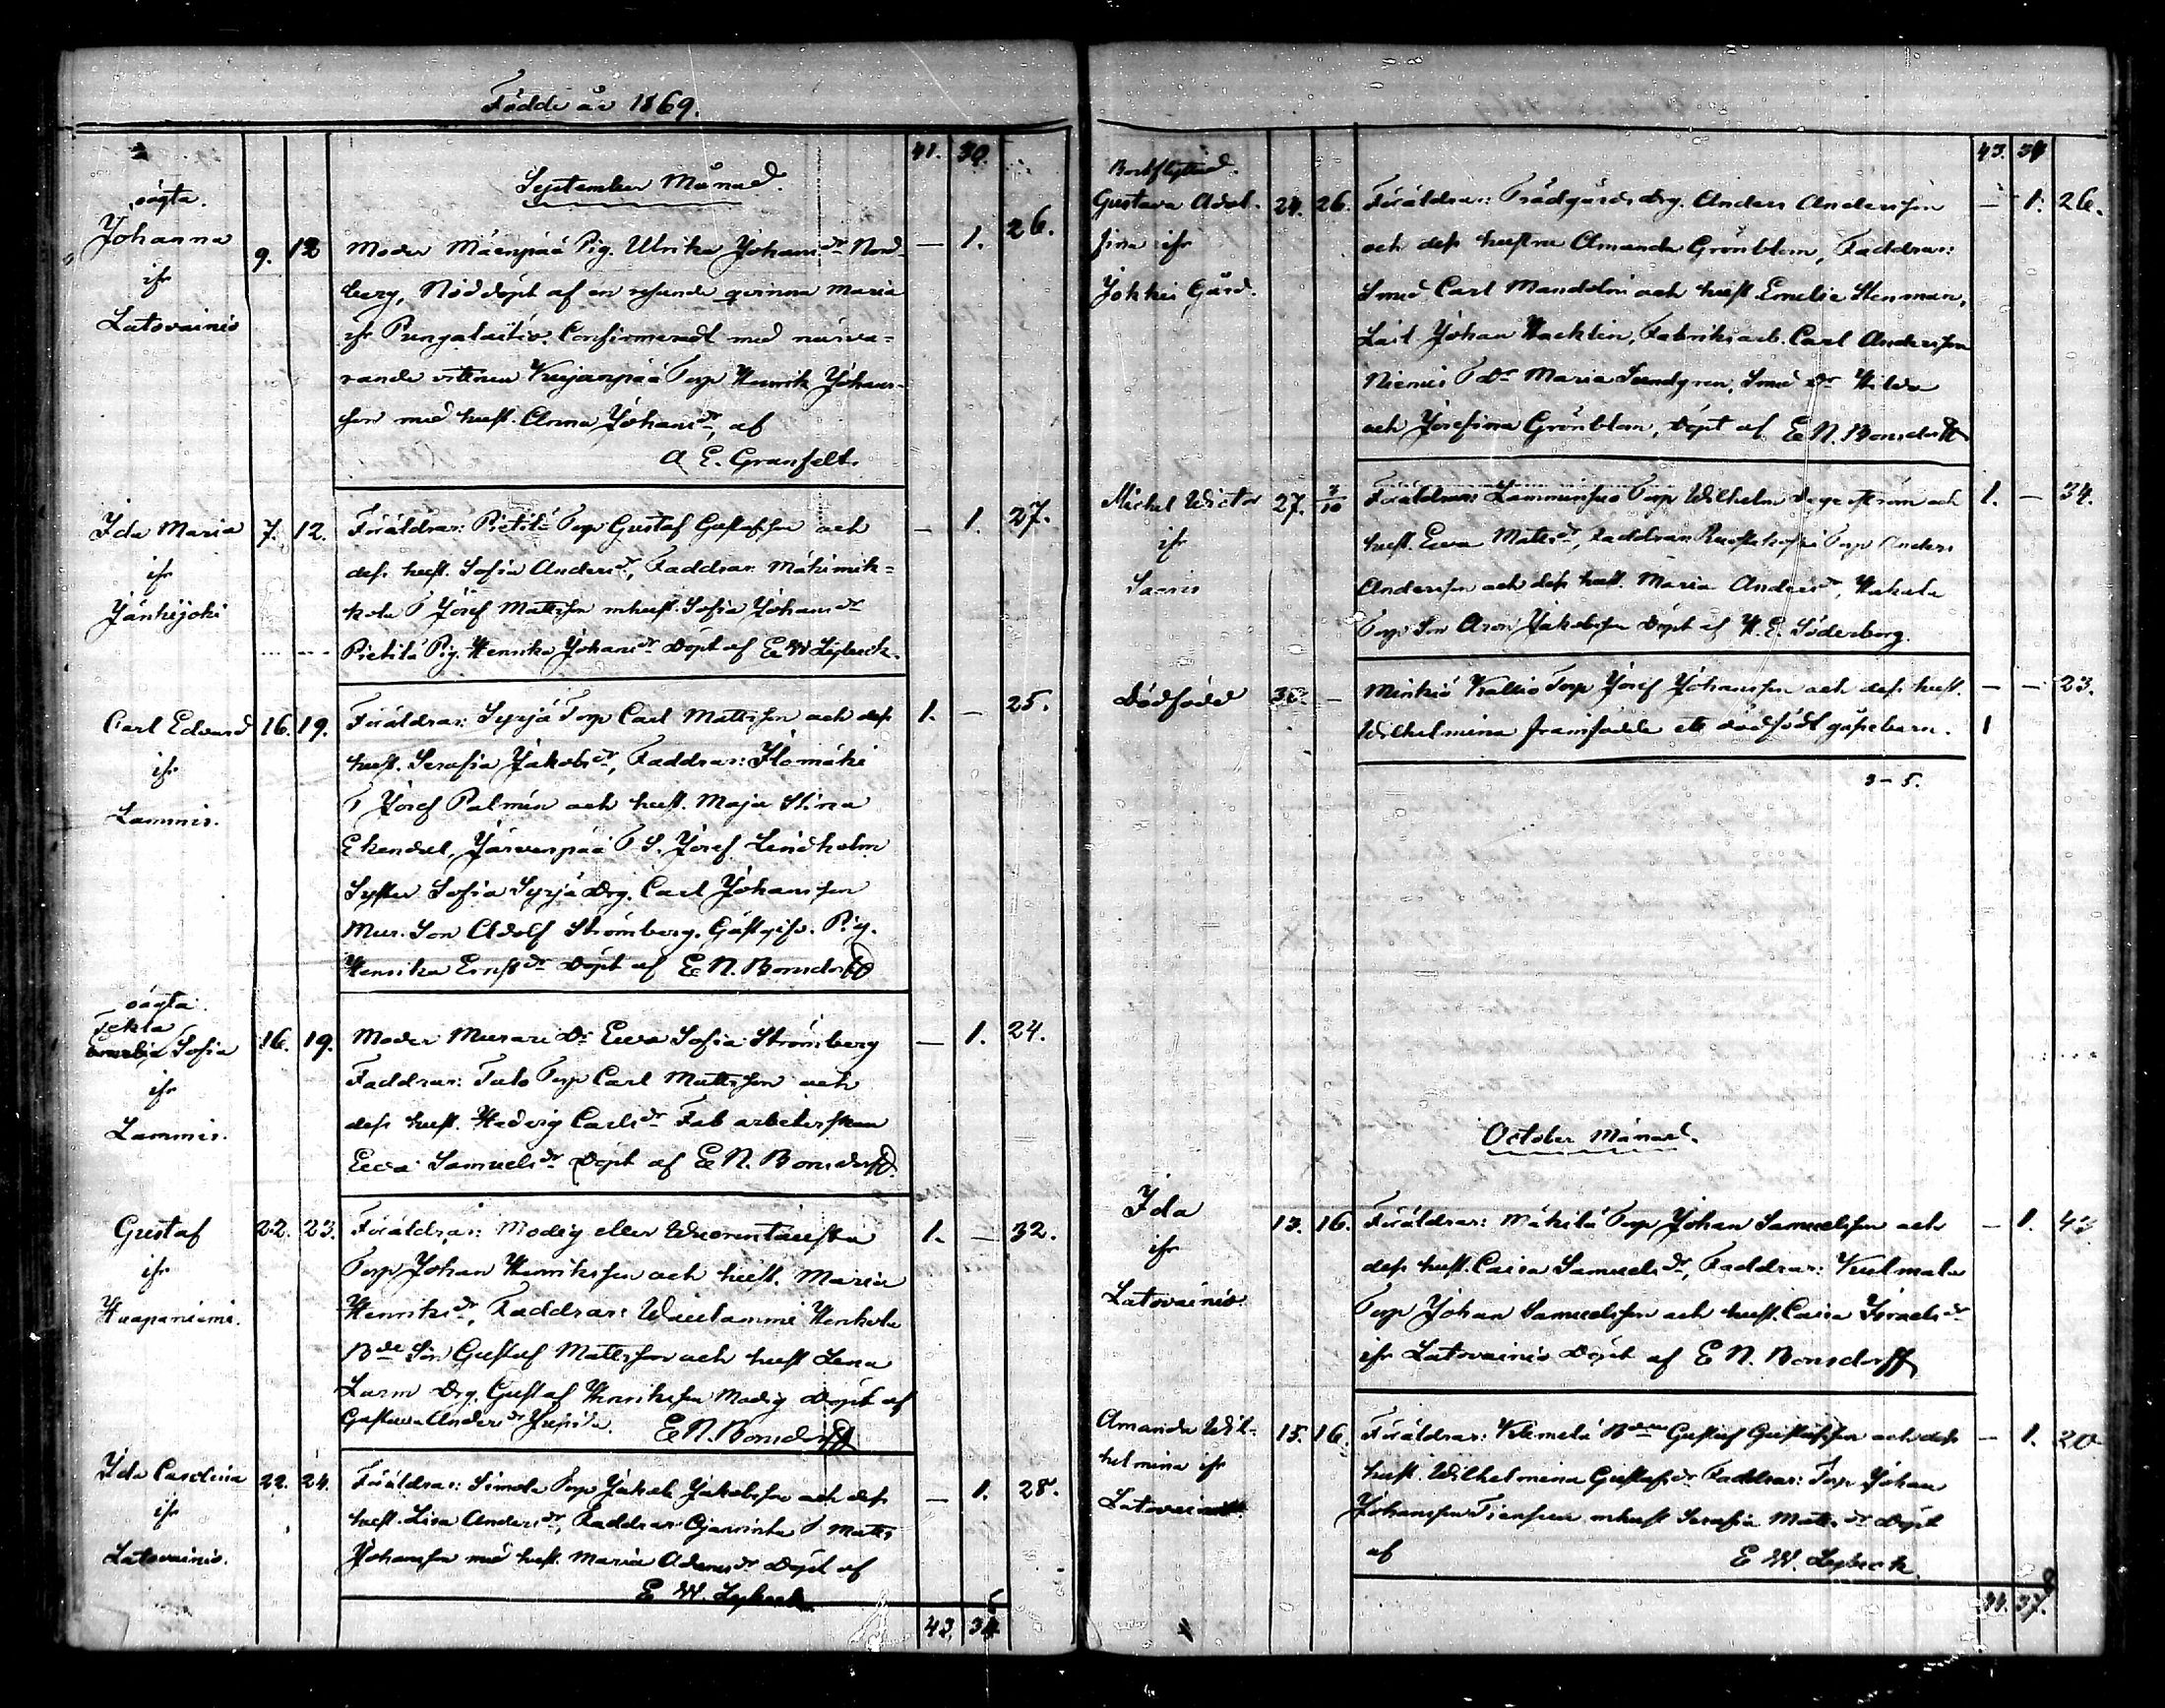 Födde år 1869.
41. 30.
September Månad.
oägta.
Johanna 9. 12 Moder Mäenpää Pig. Ulrika Johansdr Nord- — 1. 26.
ifr berg, Nöddöpt af en resande qvinna Maria
Latovainio ifr Confirmeradt med närva-
rande vittnen Kujanpää Torp Henrik Johans-
son med hust. Anna Johansdr, af
A E. Granfelt.
Ida Maria 7. 12. Föräldrar: Pietilä Torp Gustaf Gustafsson och — 1. 27.
ifr dess hust. Sofia Andersdr, Faddrar: Mäkimik-
Jänhijoki kola T Josef Mattsson mhust. Sofia Johansdr
Pietilä Pig. Henrika Johansdr Döpt af E W Lybeck.
Carl Edvard 16. 19. Föräldrar: Syrjä Torp Carl Mattsson och dess 1. — 25.
ifr hust. Serafia Jakobsdr, Faddrar: Ylomäki
Lammis. T Josef Palmén och hust. Maja Stina
Ekendal, Järvenpää T S. Josef Lindholm
Syster Sofia Syrjä Drg. Carl Johansson
Mur. Son Adolf Strömberg. Gästgifv. Pig.
Henrika Ernstdr Döpt af E N. Bonsdorff
oägta.
Tekla
Sofia 16. 19. Moder Murare Dr Eva Sofia Strömberg — 1. 24.
ifr Faddrar: Talo Torp Carl Mattsson och
Lammis. dess hust. Hedvig Carlsdr Fab arbeterskan
Eeva Samuelsdr Döpt af E N. Bonsdorff.
Gustaf 22. 23. Föräldrar: Modig eller 1. — 32.
ifr Torp Johan Henriksson och hust. Maria
Haapaniemi. Henriksdr, Faddrar: Henkola
Bde Son Gustaf Mattsson och hust Lena
Drg. Gustaf Henriksson Modig Döpt af
Gustava Andersdr E N. Bonsdorff
Ida Carolina 22. 24. Föräldrar: Simola Torp Jakob Jakobsson och dess — 1. 28.
ifr hust. Lisa Andersdr, Faddrar: T Matts
Latovainio. Johansson med hust. Maria Adamsdr Döpt af
E W. Lybeck.
43. 34
43. 34
Bortflyttad.
Gustava Adol- 24. 26. Föräldrar: Trädgårds Drg. Anders Andersson — 1. 26.
fina ifr och dess hustru Amanda Grönblom, Faddrar:
Jokkis Gård. Smed Carl Mandolin och hust Emelie Stenman,
Johan Hacklin, Fabriksarb. Carl Andersson
Niemis T Dr Maria Sundgren, Smed Dr Hilda
och Josefina Grönblom, Döpt af E N. Bonsdorff
Michel Wictor 27. 3/10 Föräldrar: Lamminsuo Torp Wilhelm Degerström och 1. — 34.
ifr hust. Eva Mattsdr, Faddrar: Torp Anders
Saaris Andersson och dess hust. Maria Andersdr, Hakala
Torp Son Aron Jakobsson Döpt af H. E. Söderborg.
Dödfödd 30. — Minkiö Kallio Torp Josef Johansson och dess hust. — — 23.
Wilhelmina framfödde ett dödfödt gossebarn. 1
3 – 5.
October Månad.
Ida 13. 16. Föräldrar: Mäkilä Torp Johan Samuelsson och — 1. 43
ifr dess hust. Caisa Samuelsdr, Faddrar: Kulmala
Latovainio. Torp Johan Samuelsson och hust. Caisa Israelsdr
ifr Latovainio Döpt af E N. Bonsdorff
Amanda Wil- 15. 16. Föräldrar: Klemelä Gustaf Gustafsson och dess — 1. 20
helmina ifr hust. Wilhelmina Gustafsdr Faddrar: Torp Johan
Johansson Tiensuu mhust Serafia Mattsdr Döpt
af E W. Lybeck.
37.